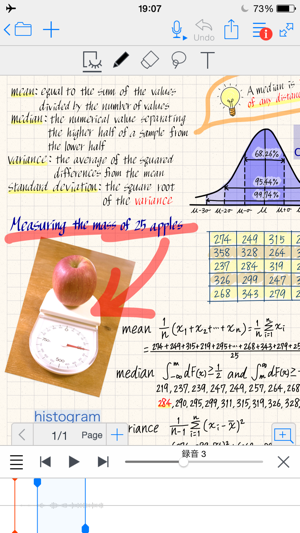 19:07
73%
Undo
1
T
mean: equal to the sum of the values
divided by the number of values
median: the numerical value separating
the higher half of a sample from
the lower half
variance: the average of the squared
differences from the mean
standard deviation: the square root
of the variance
A median is
of any distan
68.26%
95.44%
99.74%
μ-3σ μ-2σ μ-σ μ μ+σ
Measuring the mass of 25 apples
274 249 315
358 328 264
237 284 319
326 299 247
268 343 279
mean 1/n (x₁+x₂+⋯+xₙ)=1/n Σxᵢ
=274+249+315+219+295+⋯+268+343+279+255
25
median ∫dF(x)≥1/2 and ∫dF(x)≥
219, 237, 239, 247, 249, 257, 264, 268
284, 290, 295, 299, 311, 315, 319, 326, 328,
histogram
riance 1/n-1 Σ(xᵢ-x̄)²
1/1 Page
録音 3